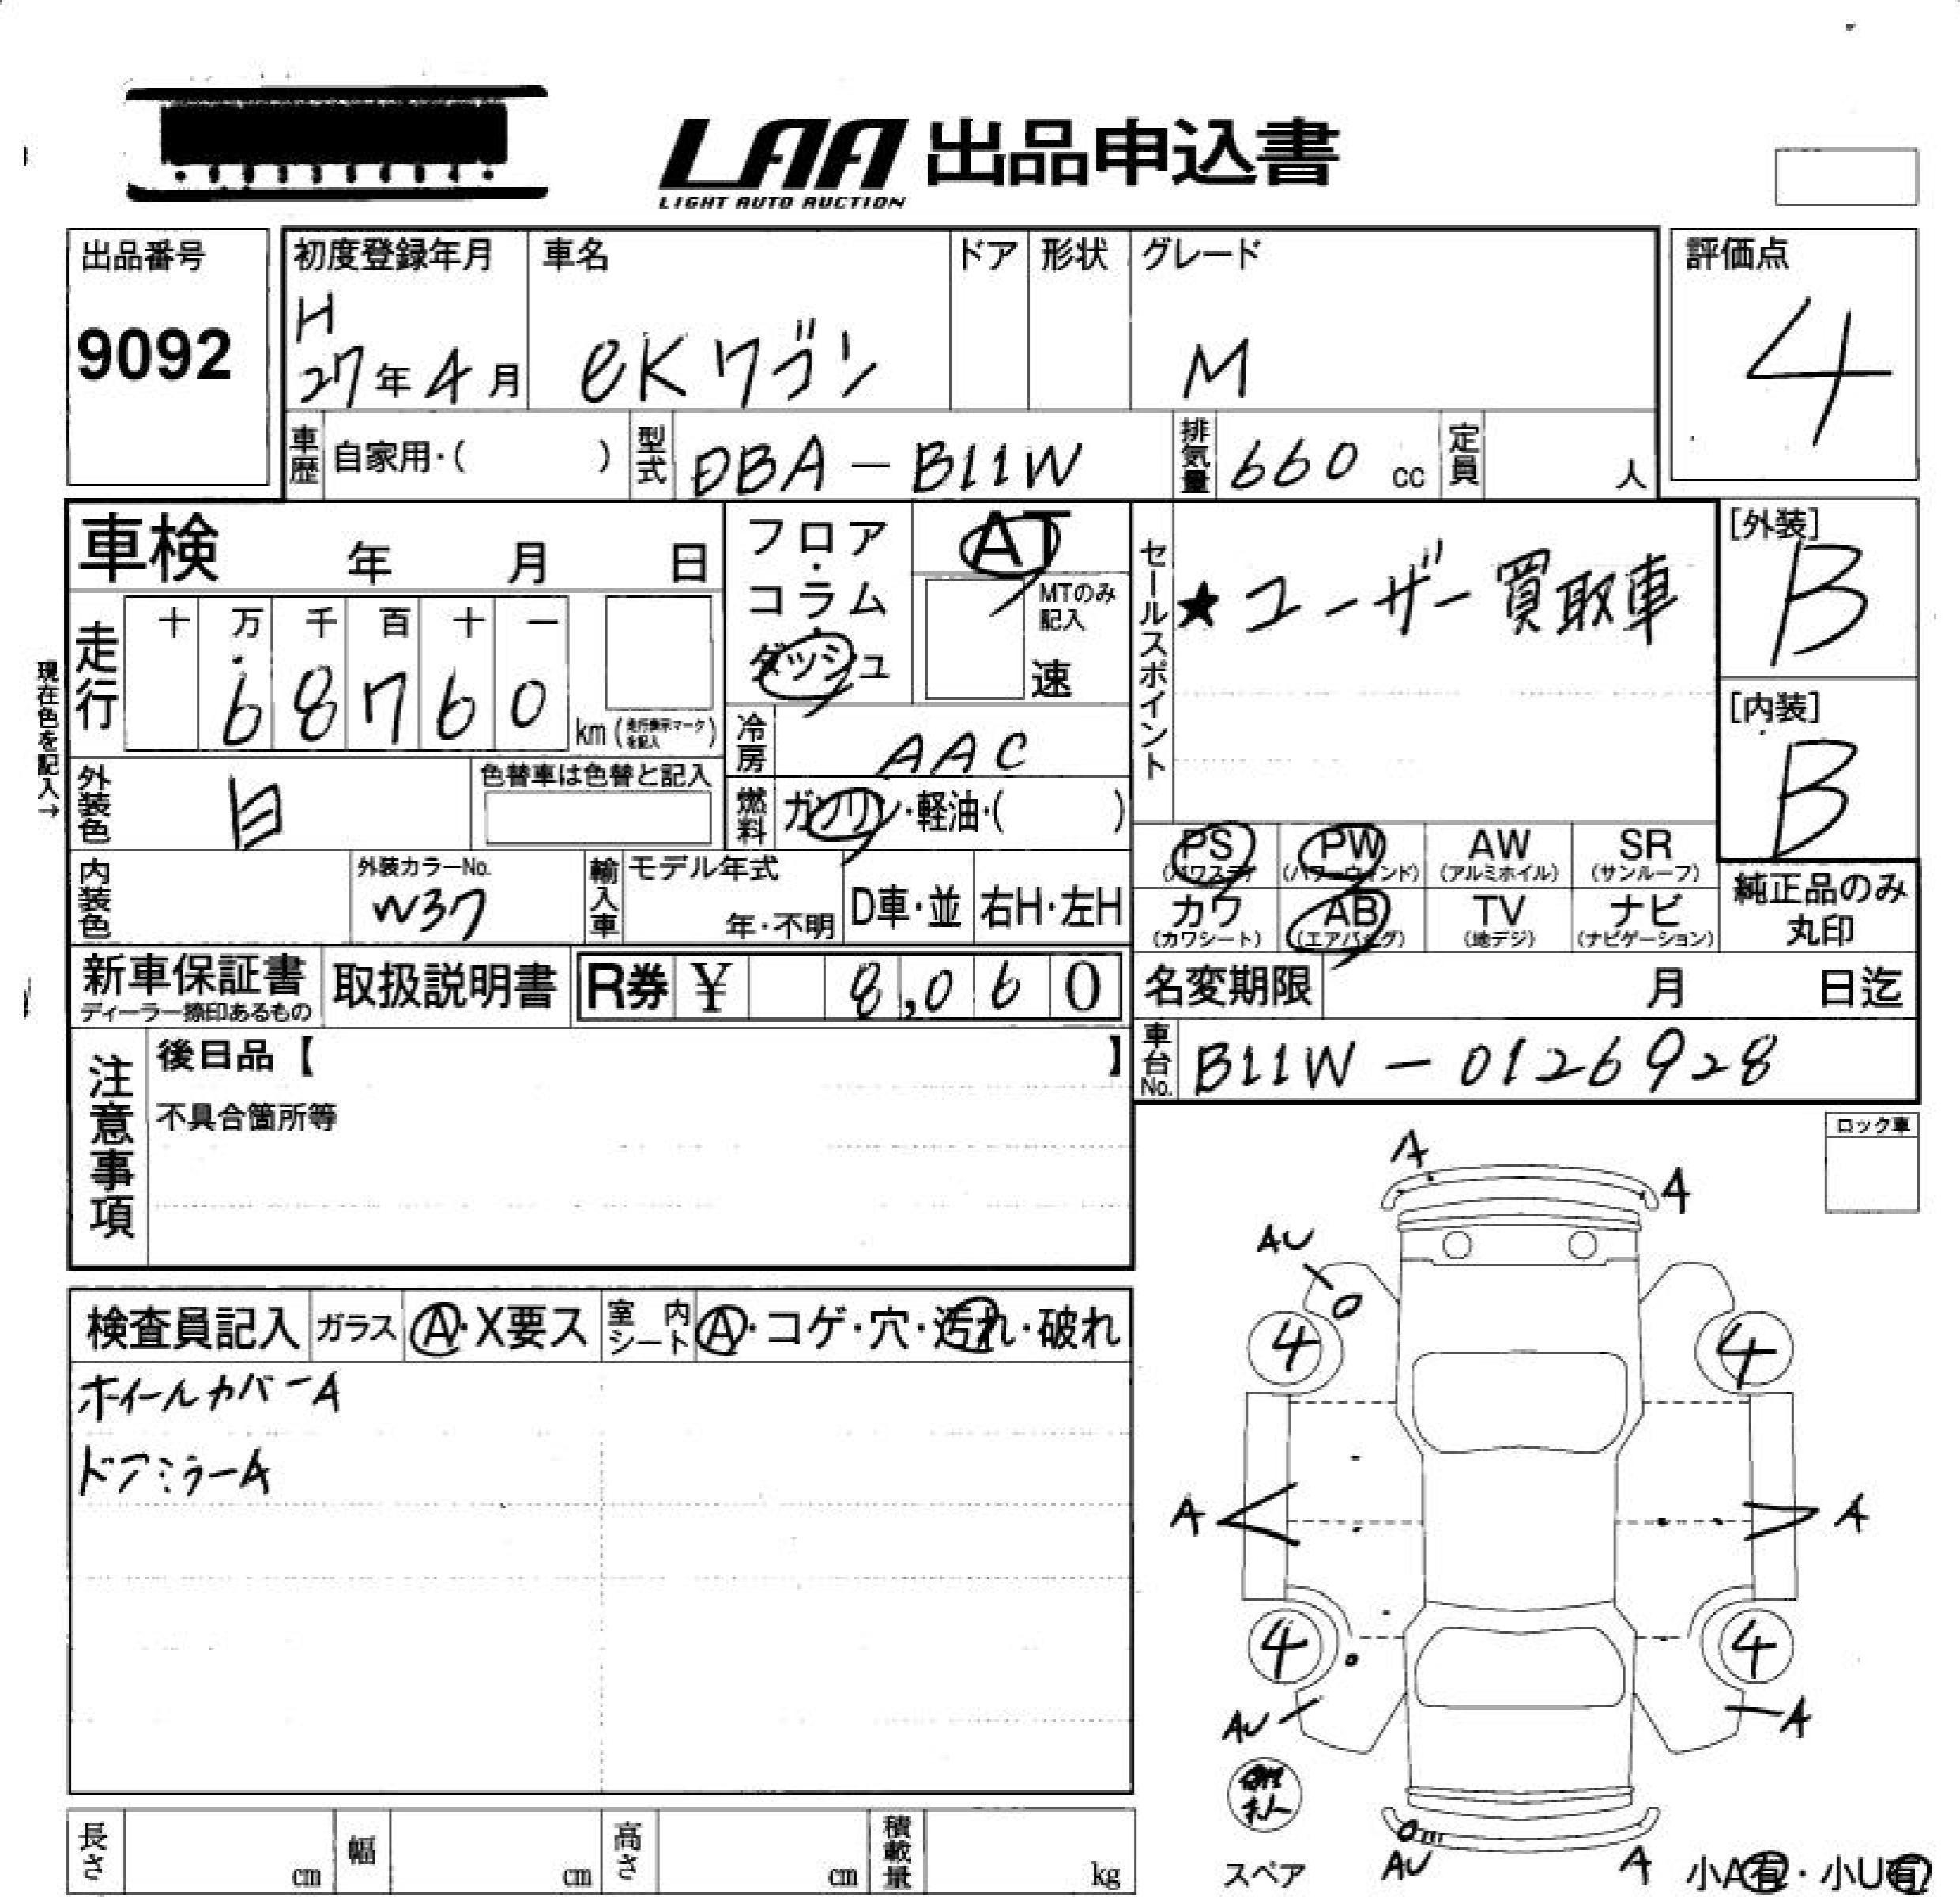 LAA 出品申込書
LIGHT AUTO AUCTION
出品番号
9092
初度登録年月
H
27年4月
車名
eKワゴン
ドア
形状
グレード
M
評価点
4
車歴 自家用・( )
型式 DBA-B11W
排気量 660 cc
定員 人
車検 年 月 日
フロア・コラム・ダッシュ
AT
MTのみ記入
速
セールスポイント
★ユーザー買取車
[外装]
B
[内装]
B
現在色を記入→
走行
十 万 千 百 十 一
68760
km(走行表示マークを記入)
冷房 AAC
外装色 白
色替車は色替と記入
燃料 ガソリン・軽油・( )
PS (パワステ)
PW (パワーウィンド)
AW (アルミホイル)
SR (サンルーフ)
カワ (カワシート)
AB (エアバッグ)
TV (地デジ)
ナビ (ナビゲーション)
純正品のみ丸印
内装色
外装カラーNo.
W37
輸入車
モデル年式
年・不明
D車・並
右H・左H
新車保証書
ディーラー捺印あるもの
取扱説明書
R券 ¥ 8,060
名変期限 月 日迄
車台No. B11W-0126928
注意事項
後日品【 】
不具合箇所等
ロック車
検査員記入
ガラス A・X要ス
室内シート A・コゲ・穴・汚れ・破れ
ホイールカバーA
ドアミラーA
A
A
AU
4
4
A
A
4
4
AU
A
スペア
AU
A
小A有・小U有
長さ cm
幅 cm
高さ cm
積載量 kg